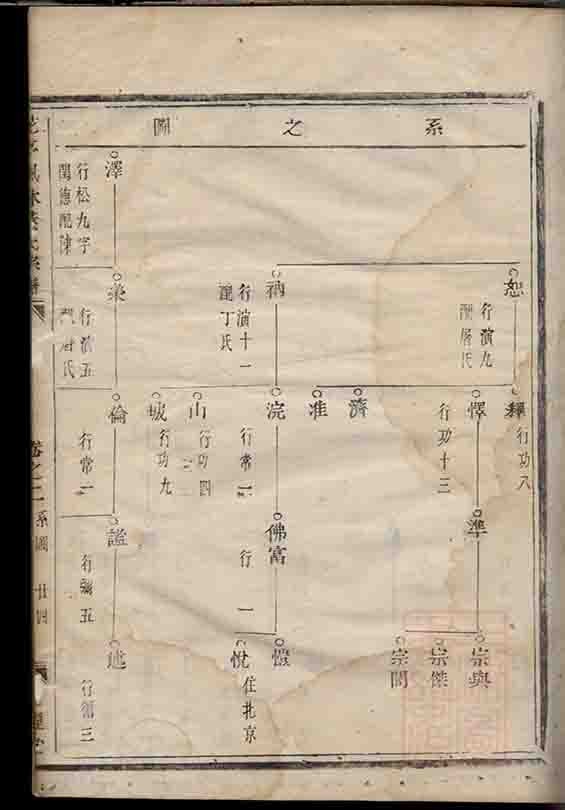 系之圖
恕
行演九
配屠氏
釋
行功八
懌
行功十三
準
宗與
宗傑
宗閎
濟
准
祷
行演十一
配丁氏
浣
行常一
佛富
行一
愷
悅
住北京
山
行功四
城
行功九
澤
行松九字
閏德配陳
榮
行演五
配屠氏
倫
行常一
謐
行彌五
述
行循三
卷之二
系圖
廿四